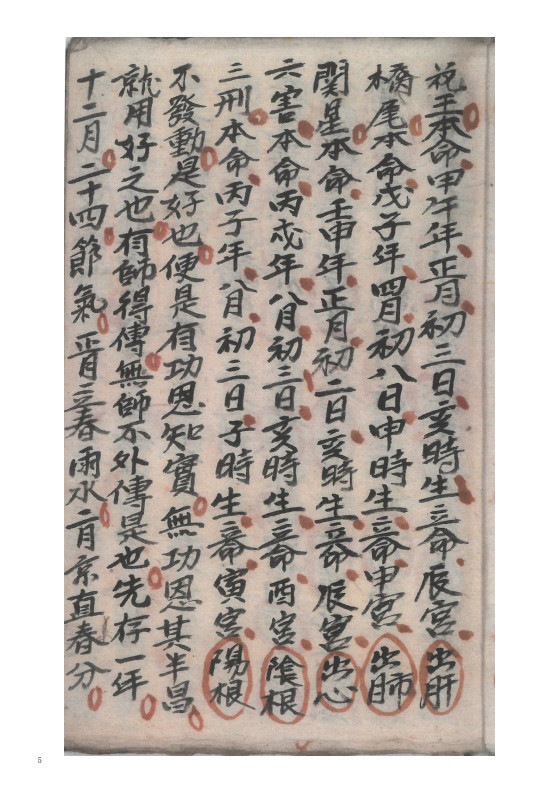 花王本命甲午年正月初三日亥時生立命辰宮出肝
橋尾本命戊子年四月初八日申時生立命申宮出肺
関星本命壬申年正月初二日亥時生立命辰宮出心
六害本命丙戌年八月初三日亥時生立命酉宮陰根
三刑本命丙子年八月初三日子時生立命寅宮陽根
不發動是好也便是有功恩知實無功恩其半昌
就用好之也有師得傳無師不外傳是也先存一年
十二月二十四節氣正月立春雨水二月京直春分
5